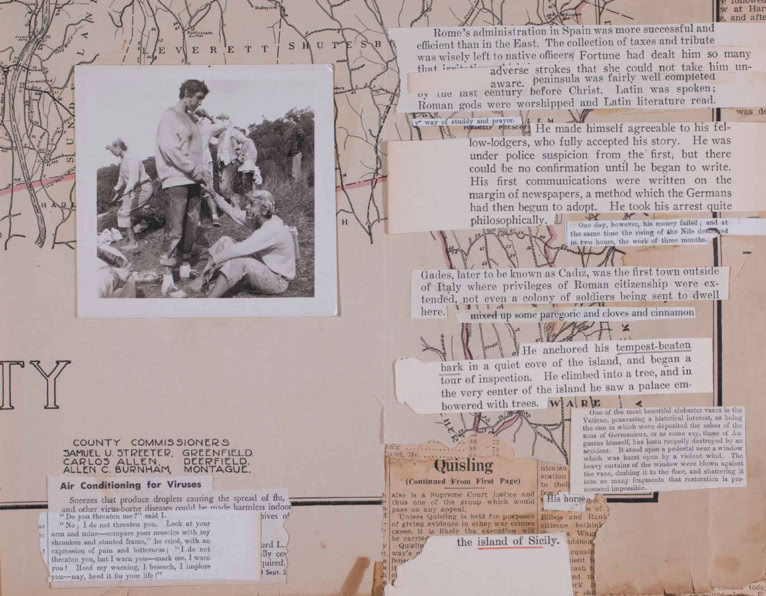 EVERETT
SHUTESB
TY
COUNTY COMMISSIONERS
SAMUEL U. STREETER, GREENFIELD.
CARLOS ALLEN, DEERFIELD.
ALLEN C. BURNHAM, MONTAGUE.
Air Conditioning for Viruses
Sneezes that produce droplets causing the spread of flu,
and other virus-borne diseases could be made harmless indoor
"Do you threaten me?" said I.
"No, I do not threaten you. Look at your
arm and mine—compare your muscles with my
shrunken and stunted frame," he cried, with an
expression of pain and bitterness; "I do not
threaten you, but I warn you—mark me, I warn
you! Heed my warning, I beseech, I implore
you—nay, heed it for your life!"
Rome's administration in Spain was more successful and
efficient than in the East. The collection of taxes and tribute
was wisely left to native officers
Fortune had dealt him so many
adverse strokes that she could not take him un-
aware.
peninsula was fairly well completed
by the last century before Christ. Latin was spoken;
Roman gods were worshipped and Latin literature read.
way of study and prayer.
He made himself agreeable to his fel-
low-lodgers, who fully accepted his story. He was
under police suspicion from the first, but there
could be no confirmation until he began to write.
His first communications were written on the
margin of newspapers, a method which the Germans
had then begun to adopt. He took his arrest quite
philosophically.
One day, however, his money failed; and at
the same time the rising of the Nile destroyed
in two hours, the work of three months.
Gades, later to be known as Cadiz, was the first town outside
of Italy where privileges of Roman citizenship were ex-
tended, not even a colony of soldiers being sent to dwell
here.
mixed up some paregoric and cloves and cinnamon
He anchored his tempest-beaten
bark in a quiet cove of the island, and began a
tour of inspection. He climbed into a tree, and in
the very center of the island he saw a palace em-
bowered with trees.
WARE
One of the most beautiful alabaster vases in the
Vatican, possessing a historical interest, as being
the one in which were deposited the ashes of the
sons of Germanicus, or as some say, those of Au-
gustus himself, has been recently destroyed by an
accident. It stood upon a pedestal near a window
which was burst open by a violent wind. The
heavy curtains of the window were blown against
the vase, dashing it to the floor, and shattering it
into so many fragments that restoration is pro-
nounced impossible.
Quisling
(Continued From First Page)
also is a Supreme Court justice and
thus one of the group which would
pass on any appeal.
Unless Quisling is held for purposes
of giving evidence in other war crimes
cases, it is likely the execution will
be carried
His horse
the island of Sicily.